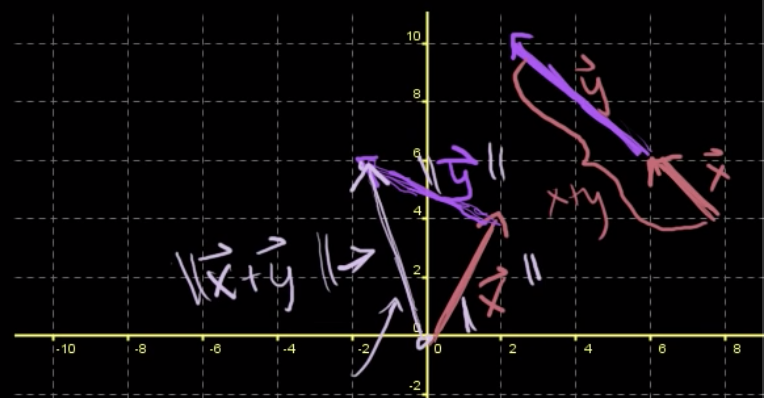 10
8
6
4
2
0
-2
-10 -8 -6 -4 -2 0 2 4 6 8
‖x⃗+y⃗‖→
‖y⃗‖
‖x⃗‖
y⃗
x⃗
x+y